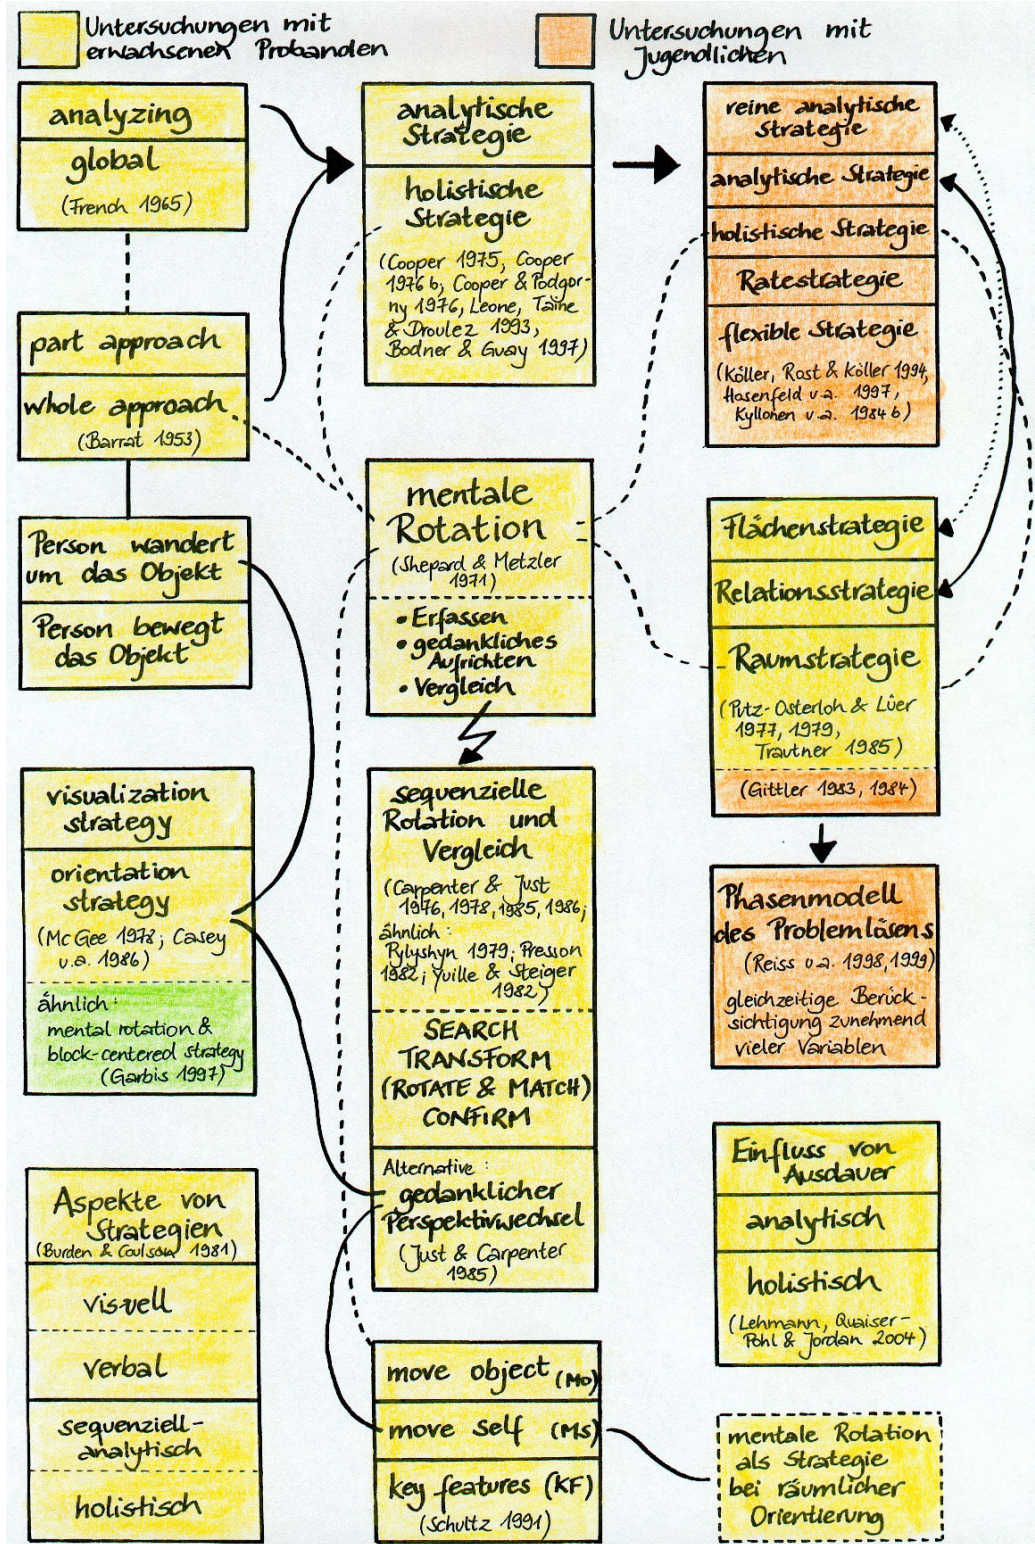 Untersuchungen mit
erwachsenen Probanden
Untersuchungen mit
Jugendlichen
analyzing
global
(French 1965)
part approach
whole approach
(Barrat 1953)
Person wandert
um das Objekt
Person bewegt
das Objekt
visualization
strategy
orientation
strategy
(Mc Gee 1978; Casey
u.a. 1986)
ähnlich:
mental rotation &
block-centered strategy
(Garbis 1997)
Aspekte von
Strategien
(Burden & Coulson 1981)
visuell
verbal
sequenziell-
analytisch
holistisch
analytische
Strategie
holistische
Strategie
(Cooper 1975, Cooper
1976 b; Cooper & Podgor-
ny 1976, Leone, Taine
& Droulez 1993,
Bodner & Guay 1997)
mentale
Rotation
(Shepard & Metzler
1971)
• Erfassen
• gedankliches
Aufrichten
• Vergleich
sequenzielle
Rotation und
Vergleich
(Carpenter & Just
1976, 1978, 1985, 1986;
ähnlich:
Pylyshyn 1979; Presson
1982; Yuille & Steiger
1982)
SEARCH
TRANSFORM
(ROTATE & MATCH)
CONFIRM
Alternative:
gedanklicher
Perspektivwechsel
(Just & Carpenter
1985)
move object (Mo)
move self (Ms)
key features (KF)
(Schultz 1991)
reine analytische
Strategie
analytische Strategie
holistische Strategie
Ratestrategie
flexible Strategie
(Köller, Rost & Köller 1994,
Hosenfeld u.a. 1997,
Kyllonen u.a. 1984 b)
Flächenstrategie
Relationsstrategie
Raumstrategie
(Putz-Osterloh & Lüer
1977, 1979,
Trautner 1985)
(Gittler 1983, 1984)
Phasenmodell
des Problemläsens
(Reiss u.a. 1998, 1999)
gleichzeitige Berück-
sichtigung zunehmend
vieler Variablen
Einfluss von
Ausdauer
analytisch
holistisch
(Lehmann, Quaiser-
Pohl & Jordan 2004)
mentale Rotation
als Strategie
bei räumlicher
Orientierung